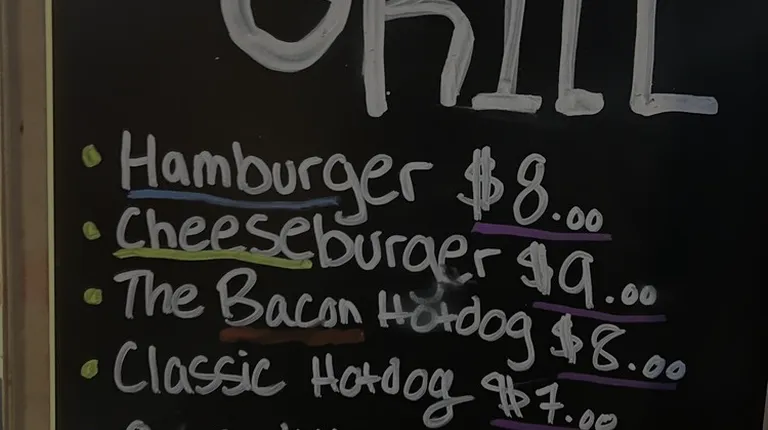 GRILL
Hamburger $8.00
Cheeseburger $9.00
The Bacon Hotdog $8.00
Classic Hotdog $7.00